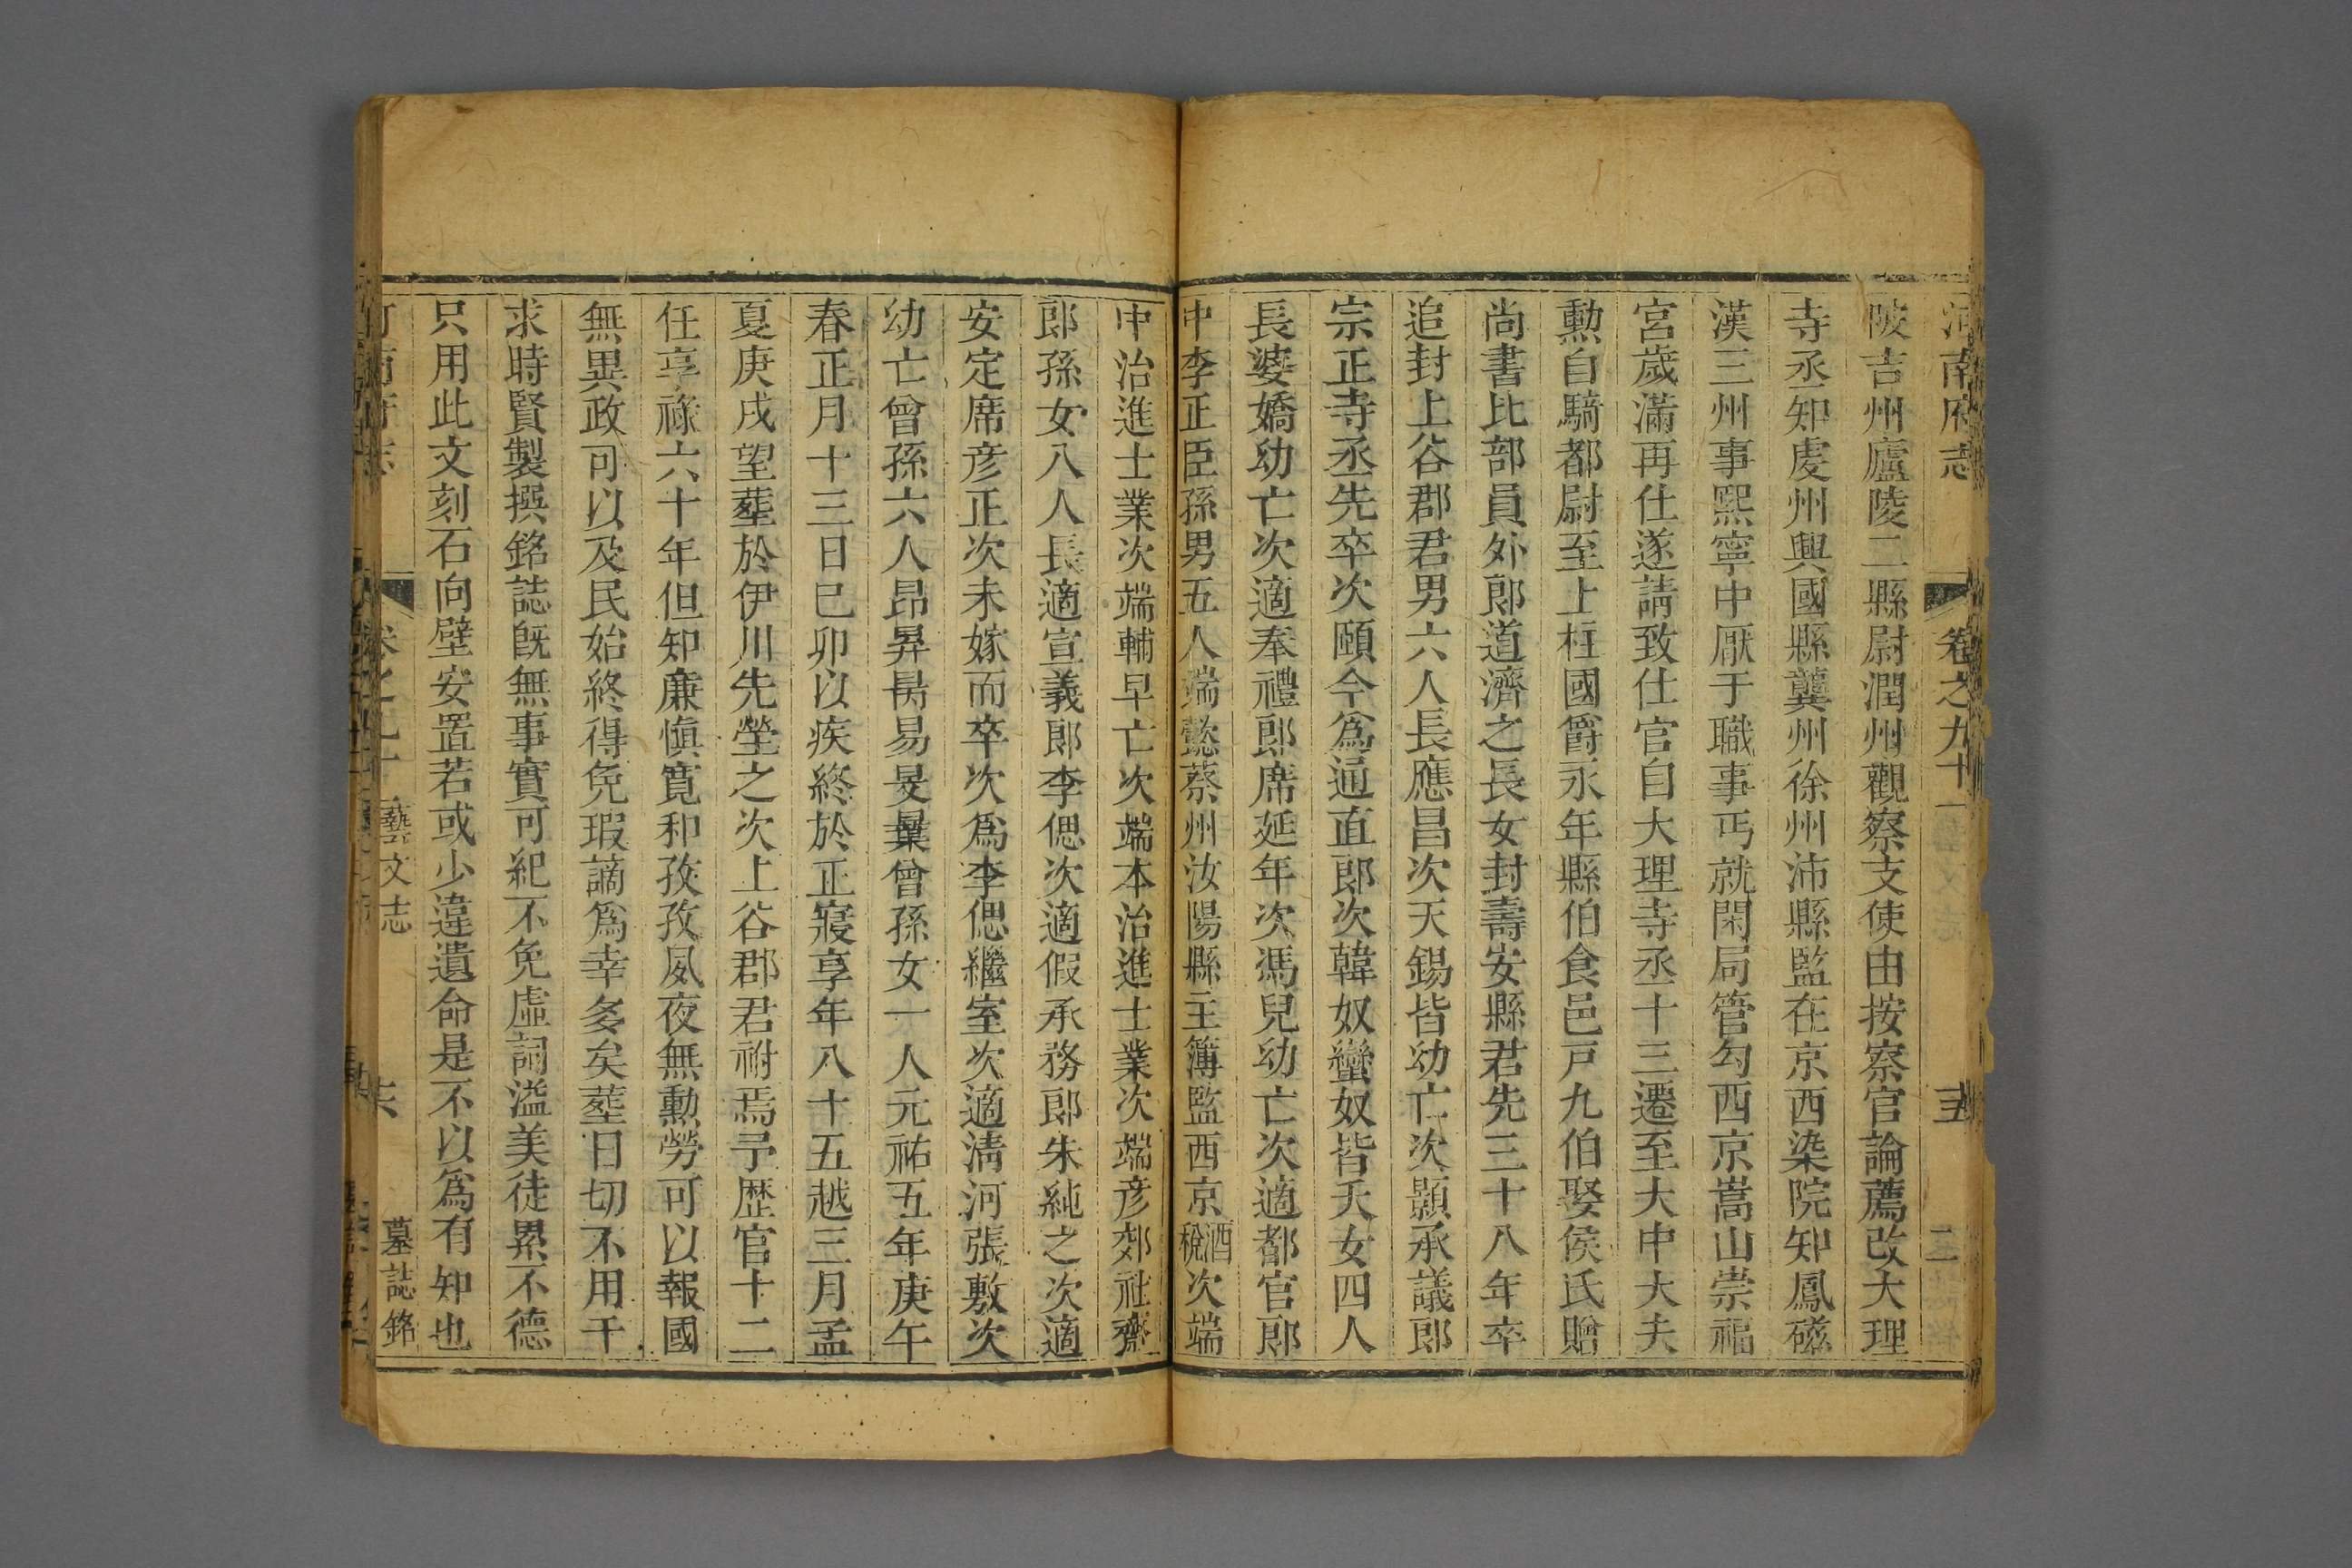 河南府志 卷之九十一 十五
陂吉州廬陵二縣尉潤州觀察支使由按察官論薦改大理
寺丞知虔州興國縣龔州徐州沛縣監在京西染院知鳳磁
漢三州事熙寧中厭于職事丐就閑局管勾西京嵩山崇福
宮歲滿再仕遂請致仕官自大理寺丞十三遷至大中大夫
勲自騎都尉至上柱國爵永年縣伯食邑戸九伯娶侯氏贈
尚書比部員外郎道濟之長女封壽安縣君先三十八年卒
追封上谷郡君男六人長應昌次天錫皆幼亡次顥承議郎
宗正寺丞先卒次頤今爲通直郎次韓奴蠻奴皆夭女四人
長婆嬌幼亡次適奉禮郎席延年次馮兒幼亡次適都官郎
中李正臣孫男五人端懿蔡州汝陽縣主簿監西京酒稅次端
中治進士業次端輔早亡次端本治進士業次端彥郊社齋
郎孫女八人長適宣義郎李偲次適假承務郎朱純之次適
安定席彥正次未嫁而卒次爲李偲繼室次適清河張敷次
幼亡曾孫六人昂昇昺易旻曅曾孫女一人元祐五年庚午
春正月十三日巳卯以疾終於正寢享年八十五越三月孟
夏庚戌望塟於伊川先塋之次上谷郡君祔焉予歴官十二
任享祿六十年但知廉愼寛和孜孜夙夜無勲勞可以報國
無異政可以及民始終得免瑕謫爲幸多矣塟日切不用干
求時賢製撰銘誌旣無事實可紀不免虛詞溢美徒累不德
只用此文刻石向壁安置若或少違遺命是不以爲有知也
藝文志 墓誌銘